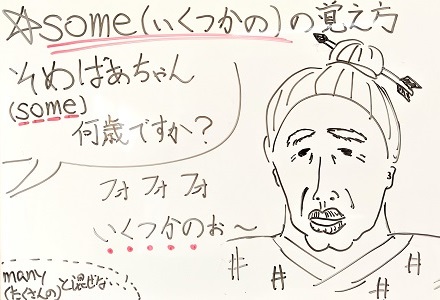 ☆some(いくつかの)の覚え方
そめばあちゃん
(some)
何歳ですか？
フォ フォ フォ
いくつかのぉ〜
many
(たくさんの)と混ぜな…!